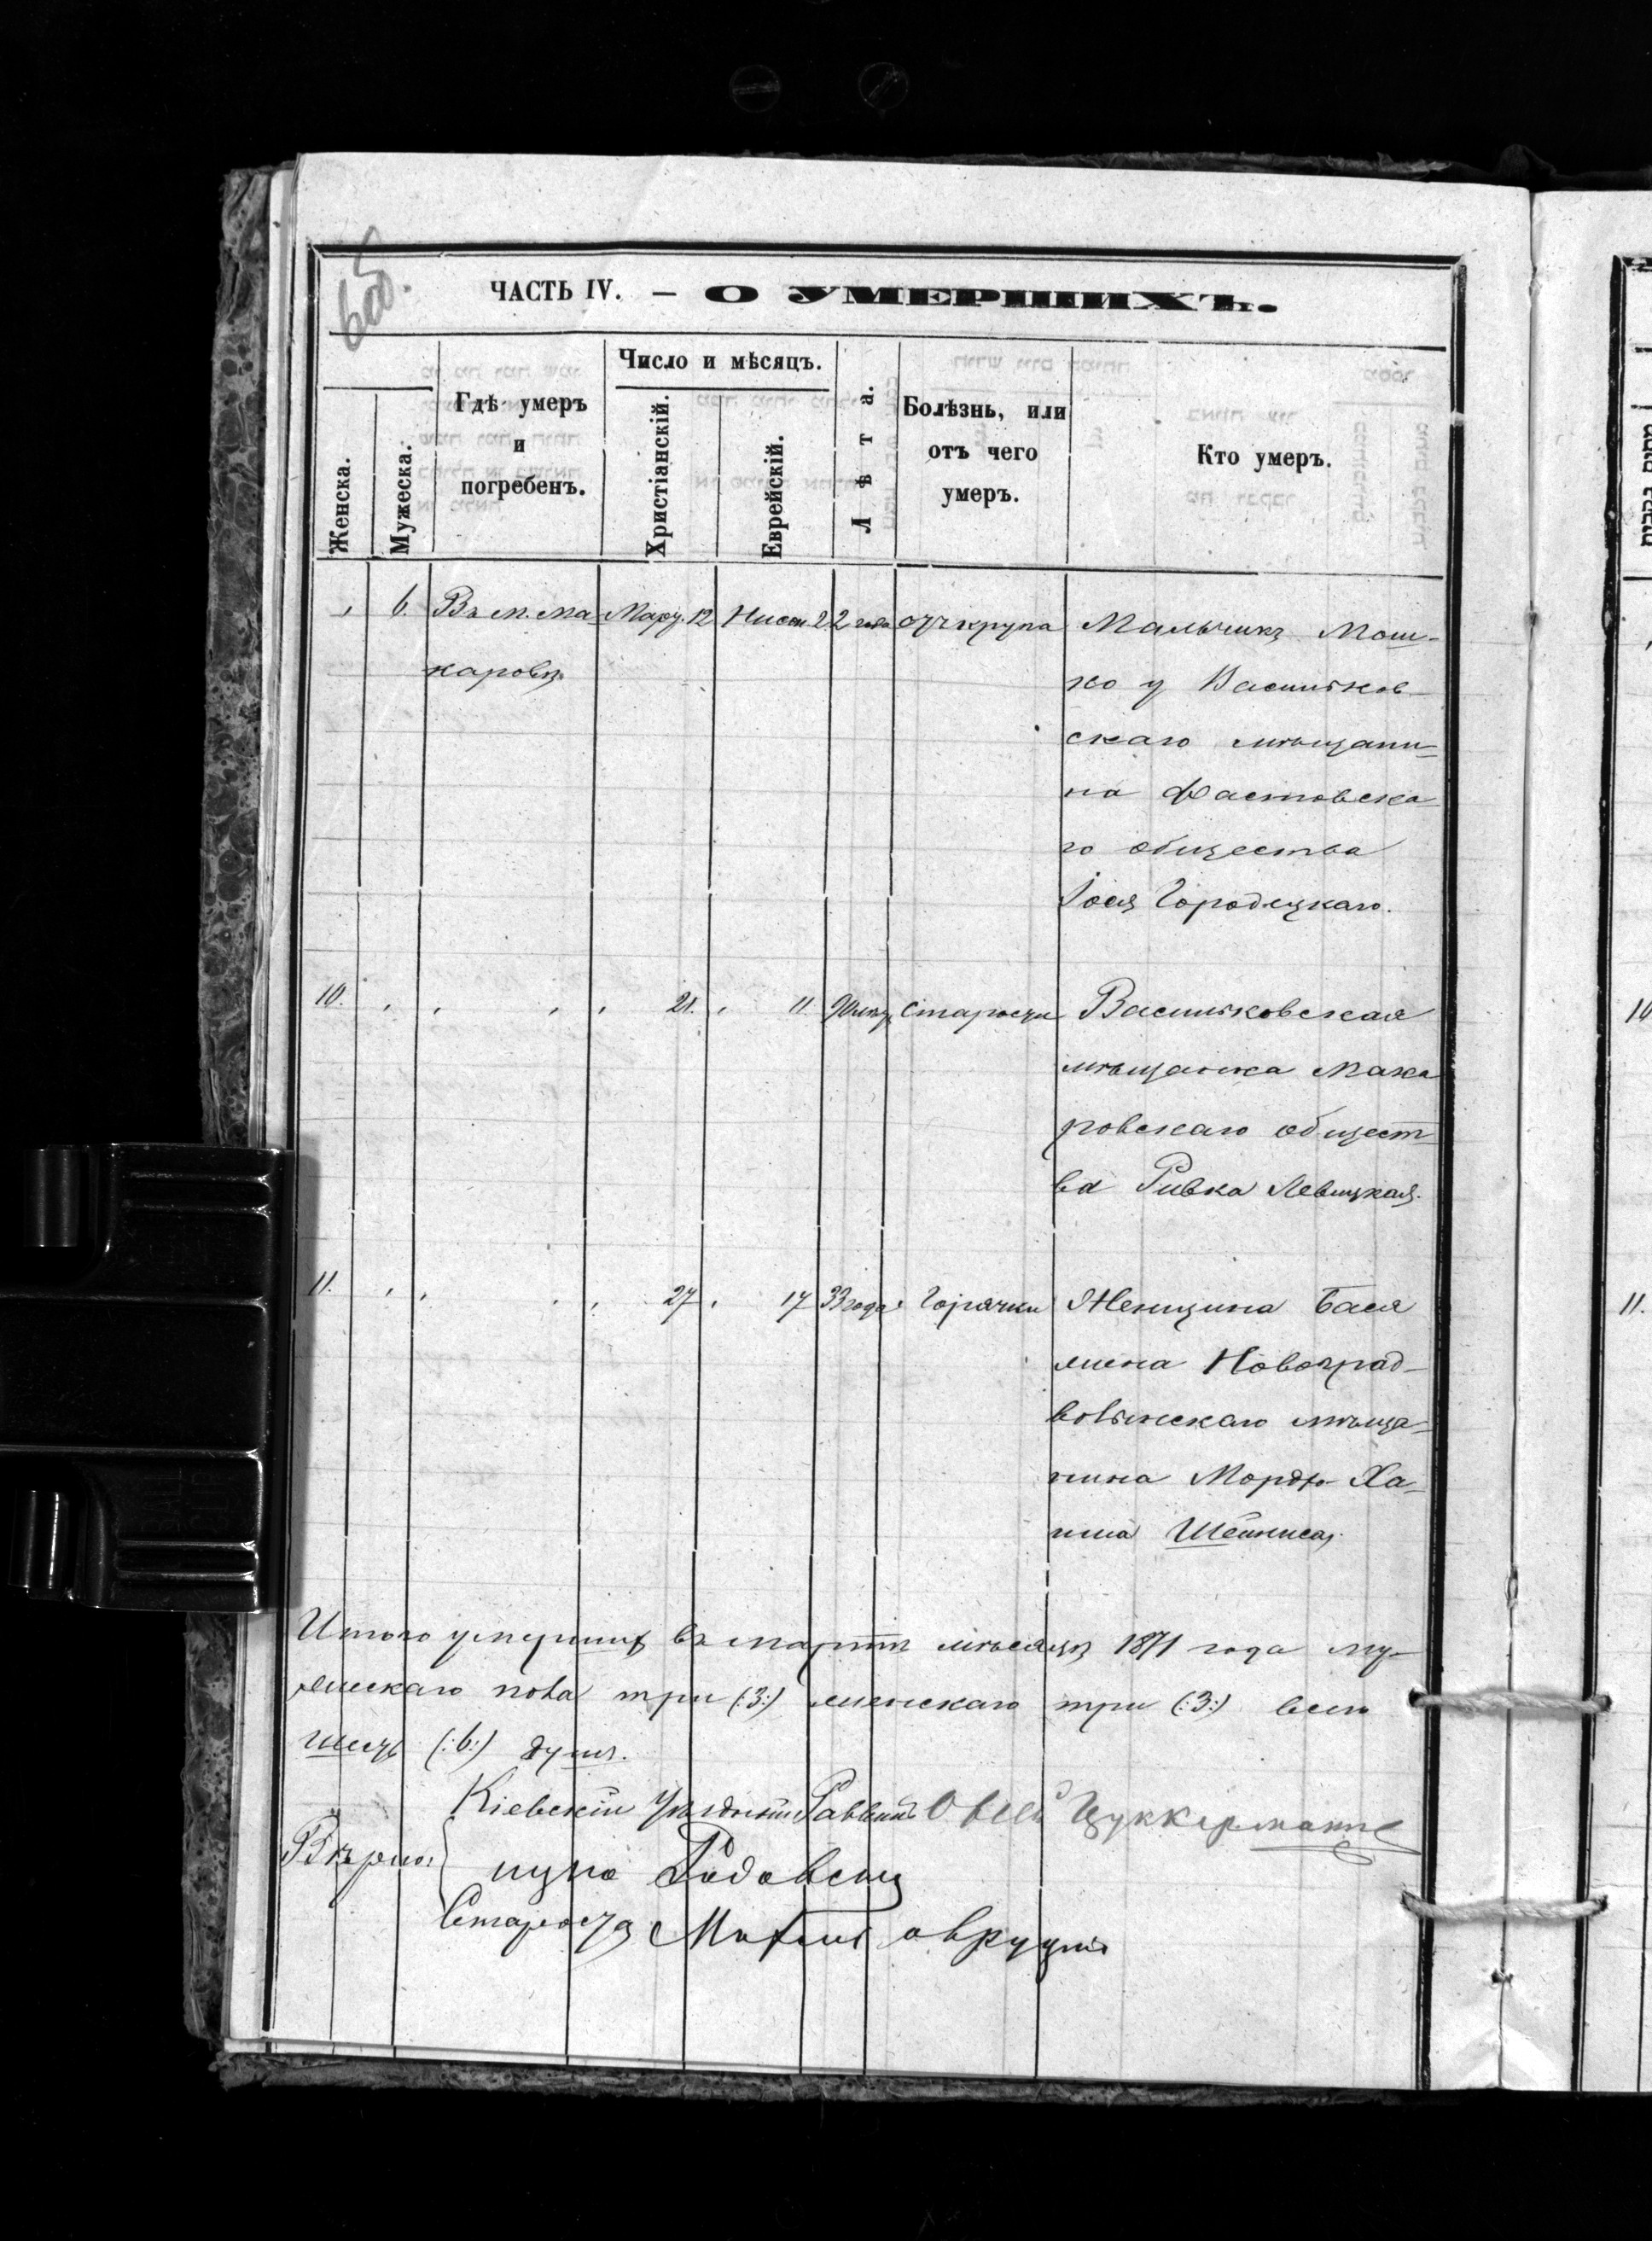 ЧАСТЬ IV. — О УМЕРШИХЪ.
Женска.
Мужеска.
Гдѣ умеръ
и
погребенъ.
Число и мѣсяцъ.
Христіанскій.
Еврейскій.
Лѣта.
Болѣзнь, или
отъ чего
умеръ.
Кто умеръ.
6. Въ м. Ма- Март. 12 Нисан 2 2 года отъ крупа Мальчикъ Мош-
каровѣ ко у Васильков-
скаго мѣщани-
на Фастовска
го общества
Іося Городецкаго.
10. 21. 11 90 лѣтъ Старости Васильковская
мѣщанка Мака
ровскаго общест-
ва Ривка Левицкая.
11. 27 17 33 года Горячки Женщина Бася
жена Новоград-
волынскаго мѣща-
нина Мордко Ха-
има
Итого умершихъ въ мартѣ мѣсяцѣ 1871 года му-
жескаго пола три (:3:) женскаго три (:3:) всего
шесть (:6:) душъ.
Кіевскій Уѣздный Раввинъ Овсей Цуккерманъ
Вѣрно:
Староста